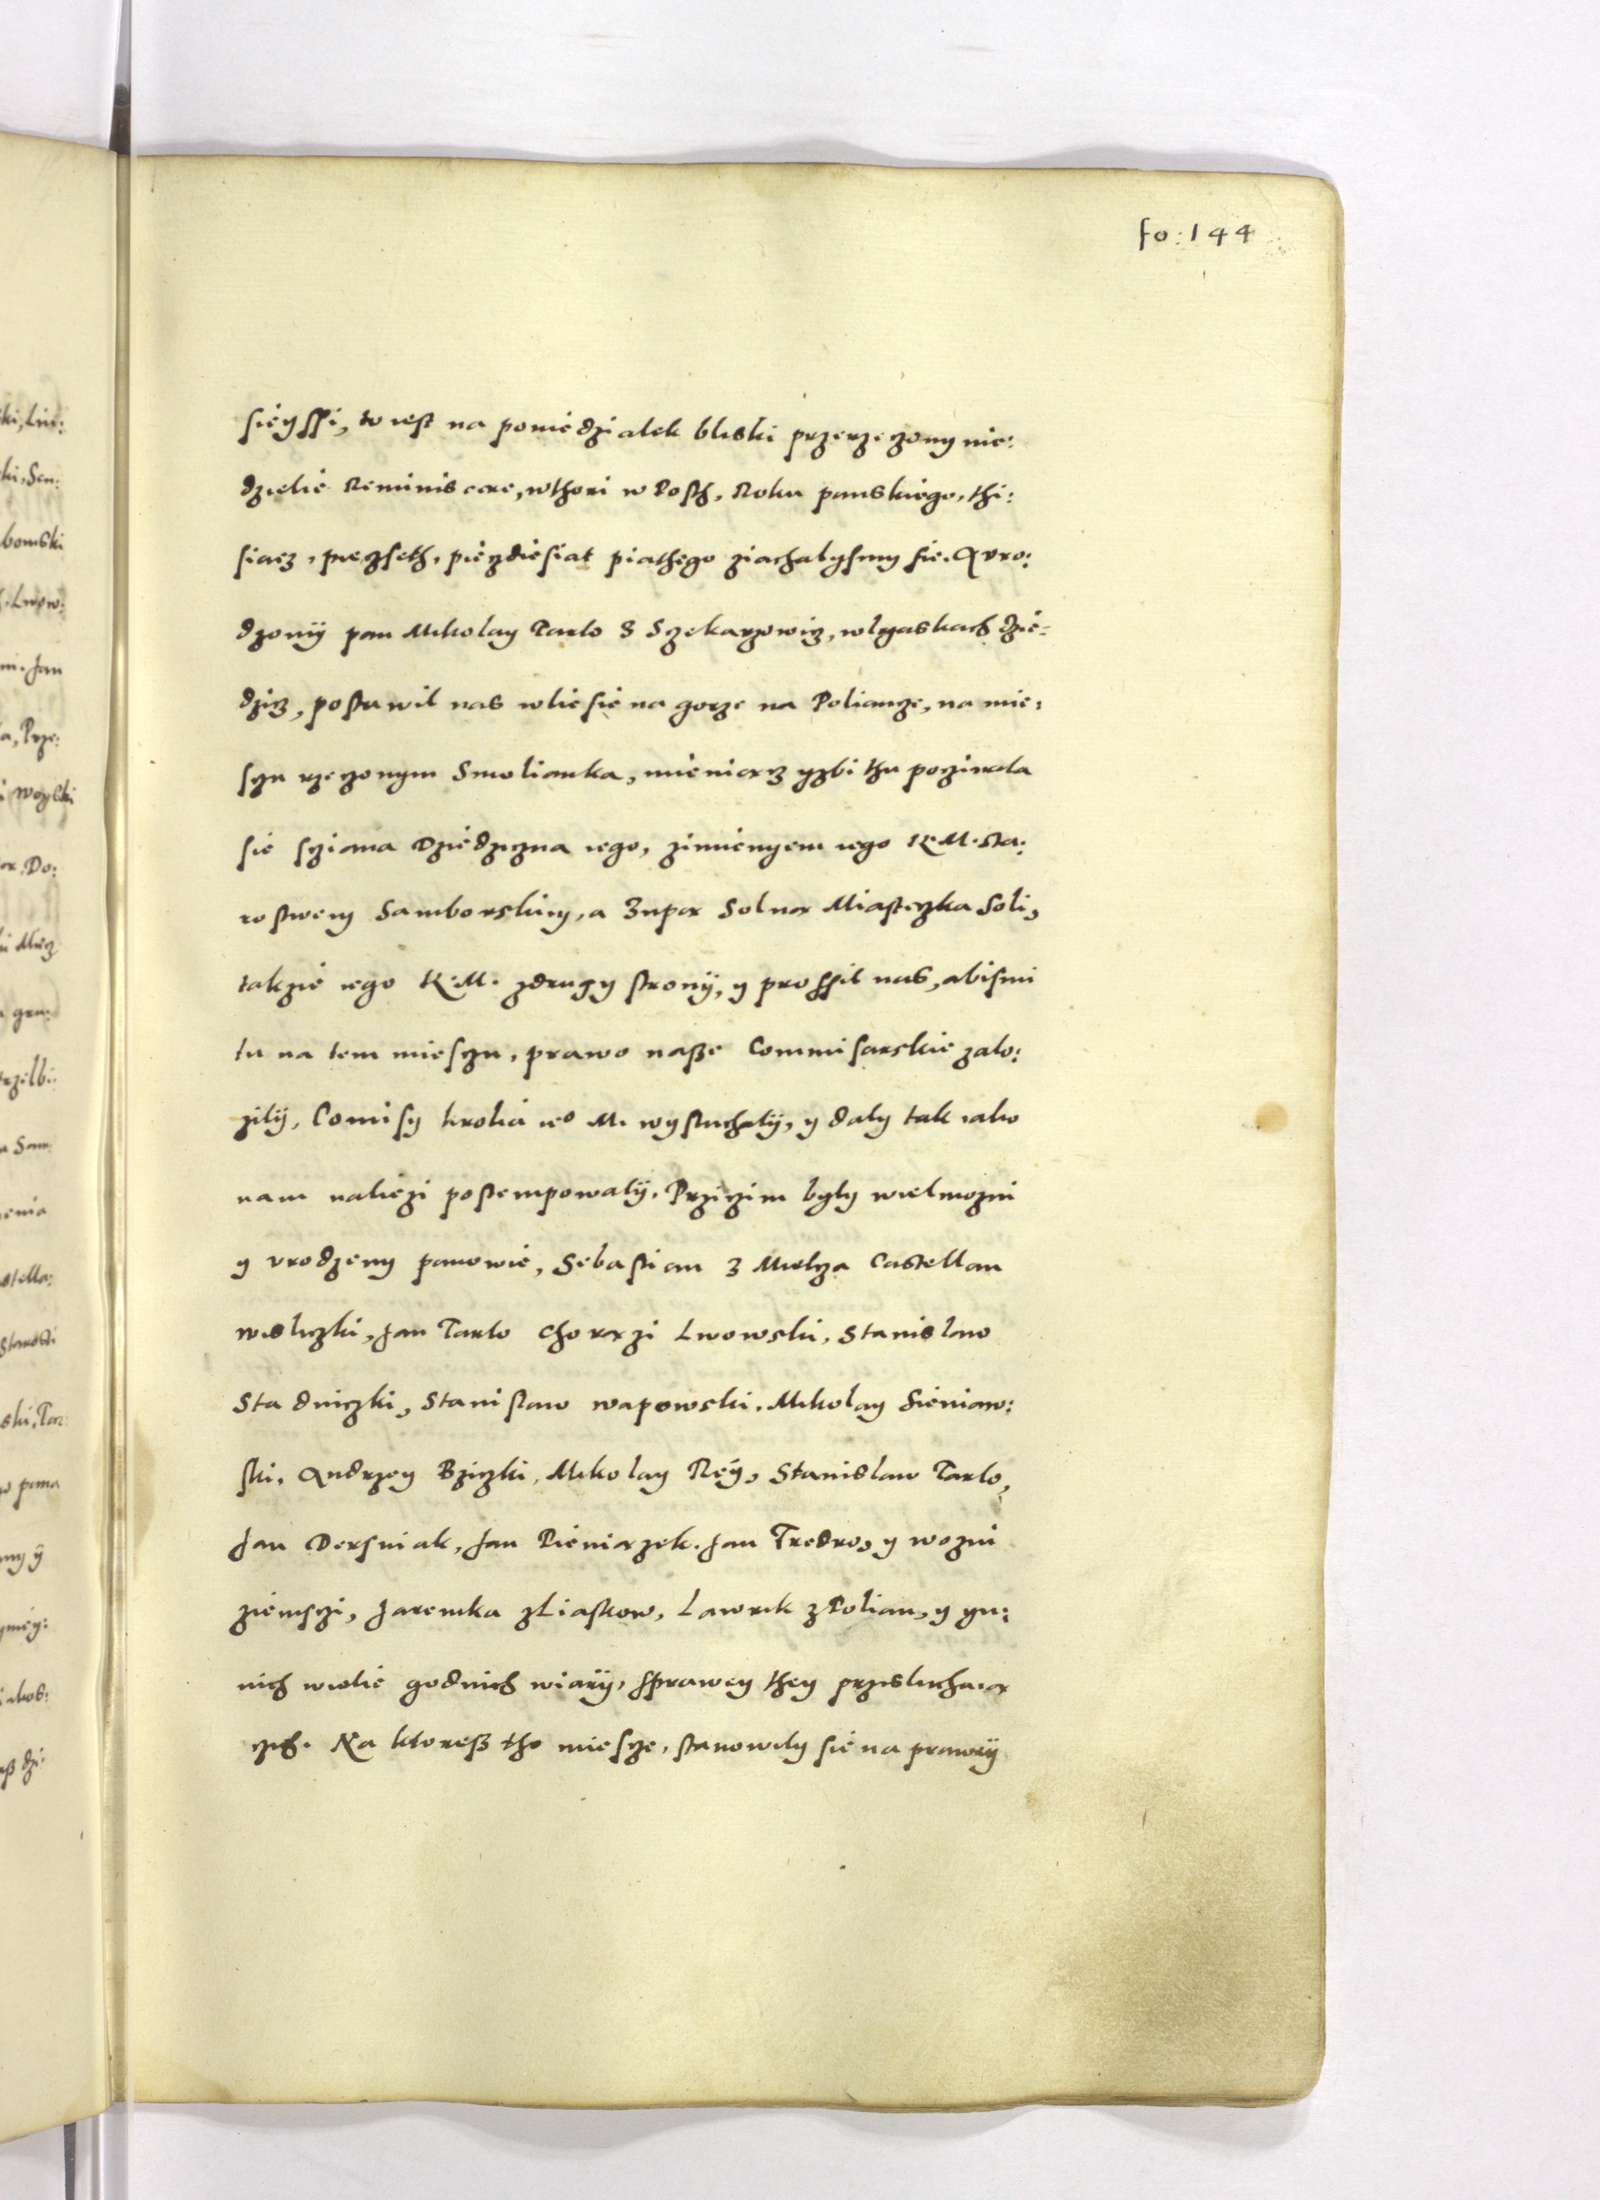 fo: 144
sieyssi, to iest na poniedzialek bliski przerzeczony nie:
dzielie Reminiscere, wthori w Posth, Roku panskiego, thi:
siacz, pieczseth, pieczdiesiat piathego ziachalysmy sie. A vro:
dzonÿ pan Mikolay Tarlo S Szekarzowicz, wlyaskach dzie:
dzicz, postawil nas wliesie na gorze na Polianze, na mie:
sczu rzeczonym Smolianka, mieniacz yzbi thu poczinala
sie sciana Dziedziczna iego, zimienyem iego K.M. sta:
rostwem Samborskim, a Zupa Solna Miasteczka Soli,
takzie iego K.M. zdrugy stronÿ, y prossil nas, abismi
tu na tem miesczu, prawo nasze Commisarskie zalo:
zilÿ, Comisy krolia ieo M. wysluchalÿ, y daly tak iako
nam naliezi postempowalÿ. Przyczim byly wielmozni
y vrodzeny panowie, Sebastian z Mielcza Castellan
wisliczki, Jan Tarlo Chorazi Lwowski, Stanislaw
Stadniczki, Stanislaw wapowski, Mikolay Sieniaw:
ski, Andrzey Bziczki, Mikolay Reÿ, Stanislaw Tarlo,
Jan Dersniak, Jan Pieniazek. Jan Fredro, y wozni
ziemsczi, Jaremka zLiaskow, Lawrik zPolian, y yn:
nich wielie godnich wiarÿ, sprawey they przisluchaia
czich. Na ktoresz tho miescze, stanowily sie na prawÿ